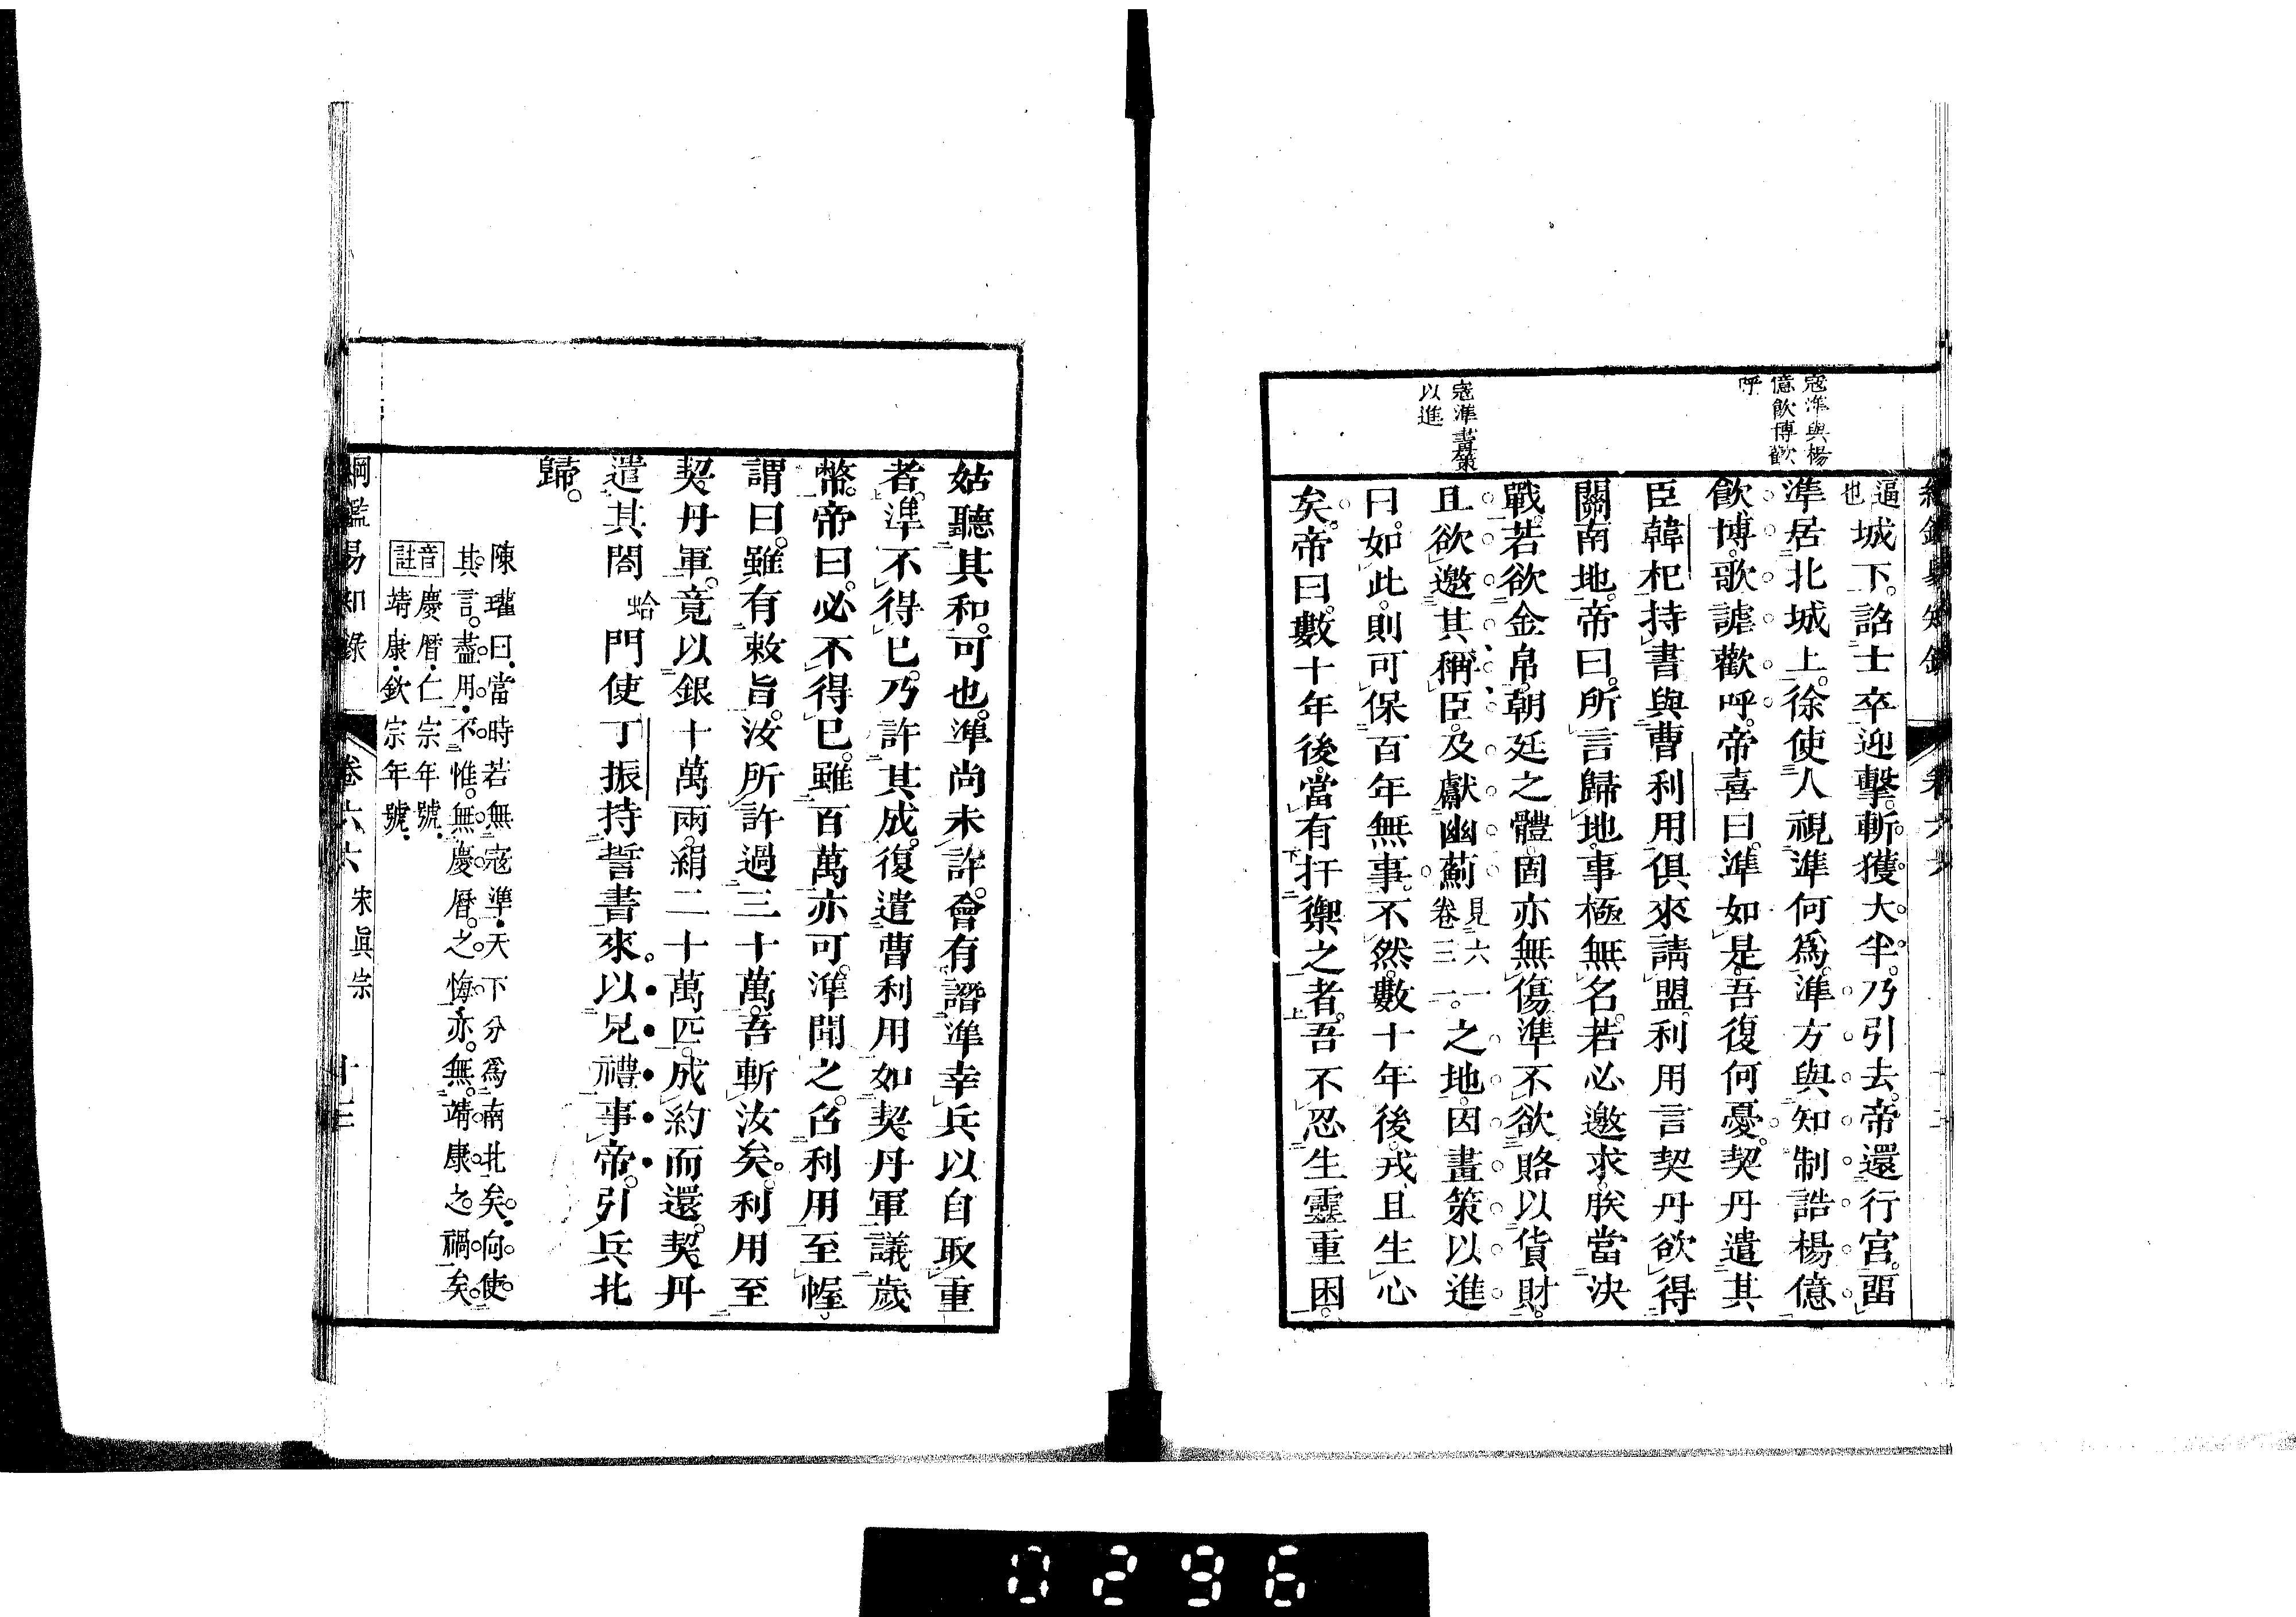 寇準與楊
億飲博歡
呼
寇準畫策
以進
逼也城下。詔士卒迎擊。斬獲大半。乃引去。帝還行宮。畱
準居北城上。徐使人視準何爲。準方與知制誥楊億
飲博。歌謔歡呼。帝喜曰。準如是。吾復何憂。契丹遣其
臣韓杞持書與曹利用俱來請盟。利用言契丹欲得
關南地。帝曰。所言歸地。事極無名。若必邀求。朕當決
戰。若欲金帛。朝廷之體。固亦無傷。準不欲賂以貨財。
且欲邀其稱臣。及獻幽薊見六一卷三一。之地。因畫策以進
曰。如此。則可保百年無事。不然。數十年後。戎且生心
矣。帝曰。數十年後。當有扞禦之者。吾不忍生靈重困。
姑聽其和。可也。準尚未許。會有譖準幸兵以自取重
者。準不得已。乃許其成。復遣曹利用如契丹軍議歲
幣。帝曰。必不得已。雖百萬亦可。準聞之。召利用至幄
謂曰。雖有敕旨。汝所許過三十萬。吾斬汝矣。利用至
契丹軍。竟以銀十萬兩。絹二十萬匹。成約而還。契丹
遣其閤蛤門使丁振持誓書來。以兄禮事帝。引兵北
歸。
陳瓘曰。當時若無寇準。天下分爲南北矣。向使
其言。盡用。不惟。無慶曆。之悔。亦。無。靖康。之。禍矣。
音註慶曆。仁宗年號。
靖康。欽宗年號。
綱鑑易知錄 卷六六 宋眞宗 十三